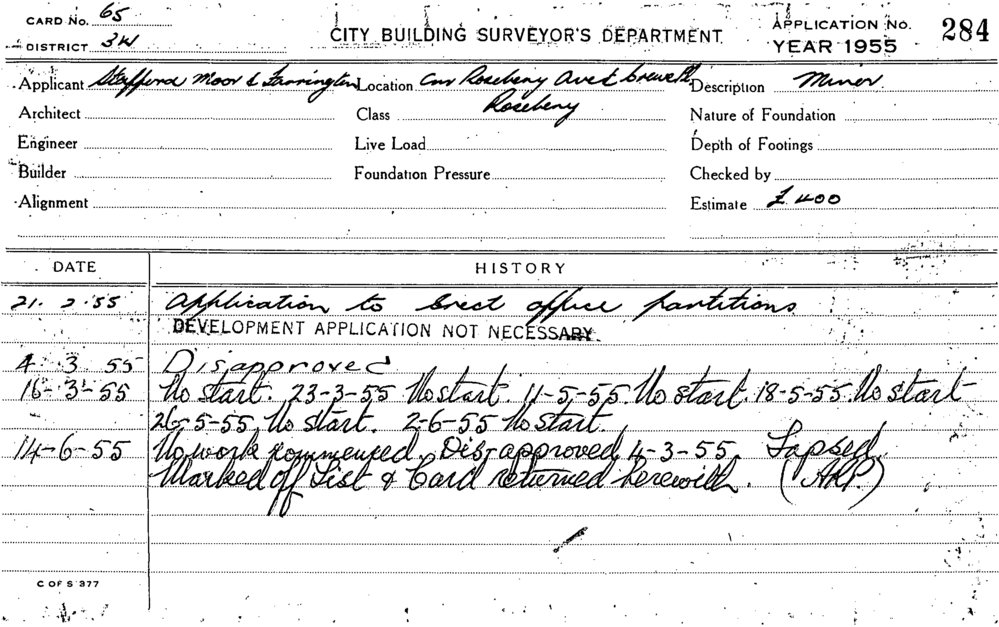 CARD No. 65
DISTRICT 3W
CITY BUILDING SURVEYOR'S DEPARTMENT
APPLICATION No. 284
YEAR 1955
Applicant Stafford Moor & Farrington Location Cnr Rosebery Ave & Crewe Pl Description Minor
Architect Class Rosebery Nature of Foundation
Engineer Live Load Depth of Footings
Builder Foundation Pressure Checked by
Alignment Estimate £400
DATE HISTORY
21. 2. 55 Application to erect office partitions
DEVELOPMENT APPLICATION NOT NECESSARY.
4 3 55 Disapproved
16-3-55 No start. 23-3-55 No start. 11-5-55. No start. 18-5-55. No start
26-5-55. No start. 2-6-55 No start.
14-6-55 No work commenced. Dis-approved 4-3-55. Lapsed
Marked off List & Card returned herewith. (ARP.)
C OF S 377